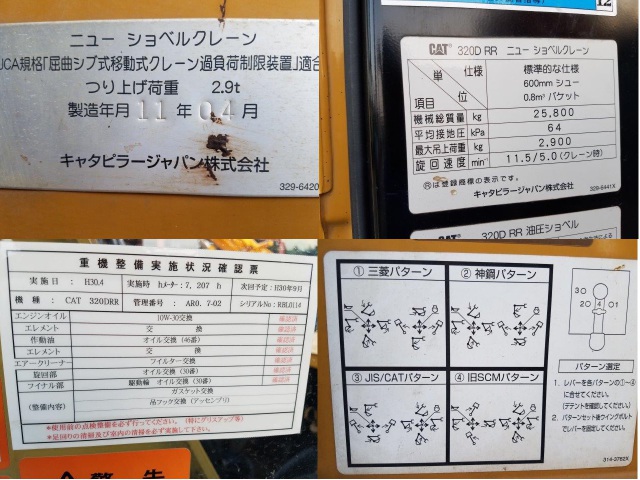 ニュー ショベルクレーン
JCA規格「屈曲ジブ式移動式クレーン過負荷制限装置」適合
つり上げ荷重 2.9t
製造年月 11 年 04 月
キャタピラージャパン株式会社
329-6420
12
CAT 320D RR ニュー ショベルクレーン
単位 仕様 項目
標準的な仕様
600mm シュー
0.8m³ バケット
機械総質量 kg 25,800
平均接地圧 kPa 64
最大吊上荷重 kg 2,900
旋回速度 min⁻¹ 11.5/5.0(クレーン時)
Ⓡは登録商標の表示です。
キャタピラージャパン株式会社
329-6441X
CAT 320D RR 油圧ショベル
重機整備実施状況確認票
実施日: H30.4 実施時 hメーター: 7,207 h 次回予定: H30年9月
機種: CAT 320DRR 管理番号: AR0.7-02 シリアルNo: RBL0114
エンジンオイル 10W-30交換 確認済
エレメント 交 換 確認済
作動油 オイル交換(46番) 確認済
エレメント 交 換 確認済
エアークリーナー フィルター交換 確認済
旋回部 オイル交換(30番) 確認済
ファイナル部 駆動輪 オイル交換(30番) 確認済
(整備内容) ガスケット交換
吊フック交換(アッセンブリ)
*使用前の点検整備を必ず行ってください。(特にグリスアップ等)
*足回りの清掃及び室内の清掃を必ず実施して下さい。
警告
① 三菱パターン
② 神鋼パターン
③ JIS/CATパターン
④ 旧SCMパターン
2 4 1
3
パターン選定
1. レバーを各パターンの①〜④
に合せてください。
(デテントを確認してください)
2. パターンセット後ウイングボルト
でレバーを固定してください。
314-3752X